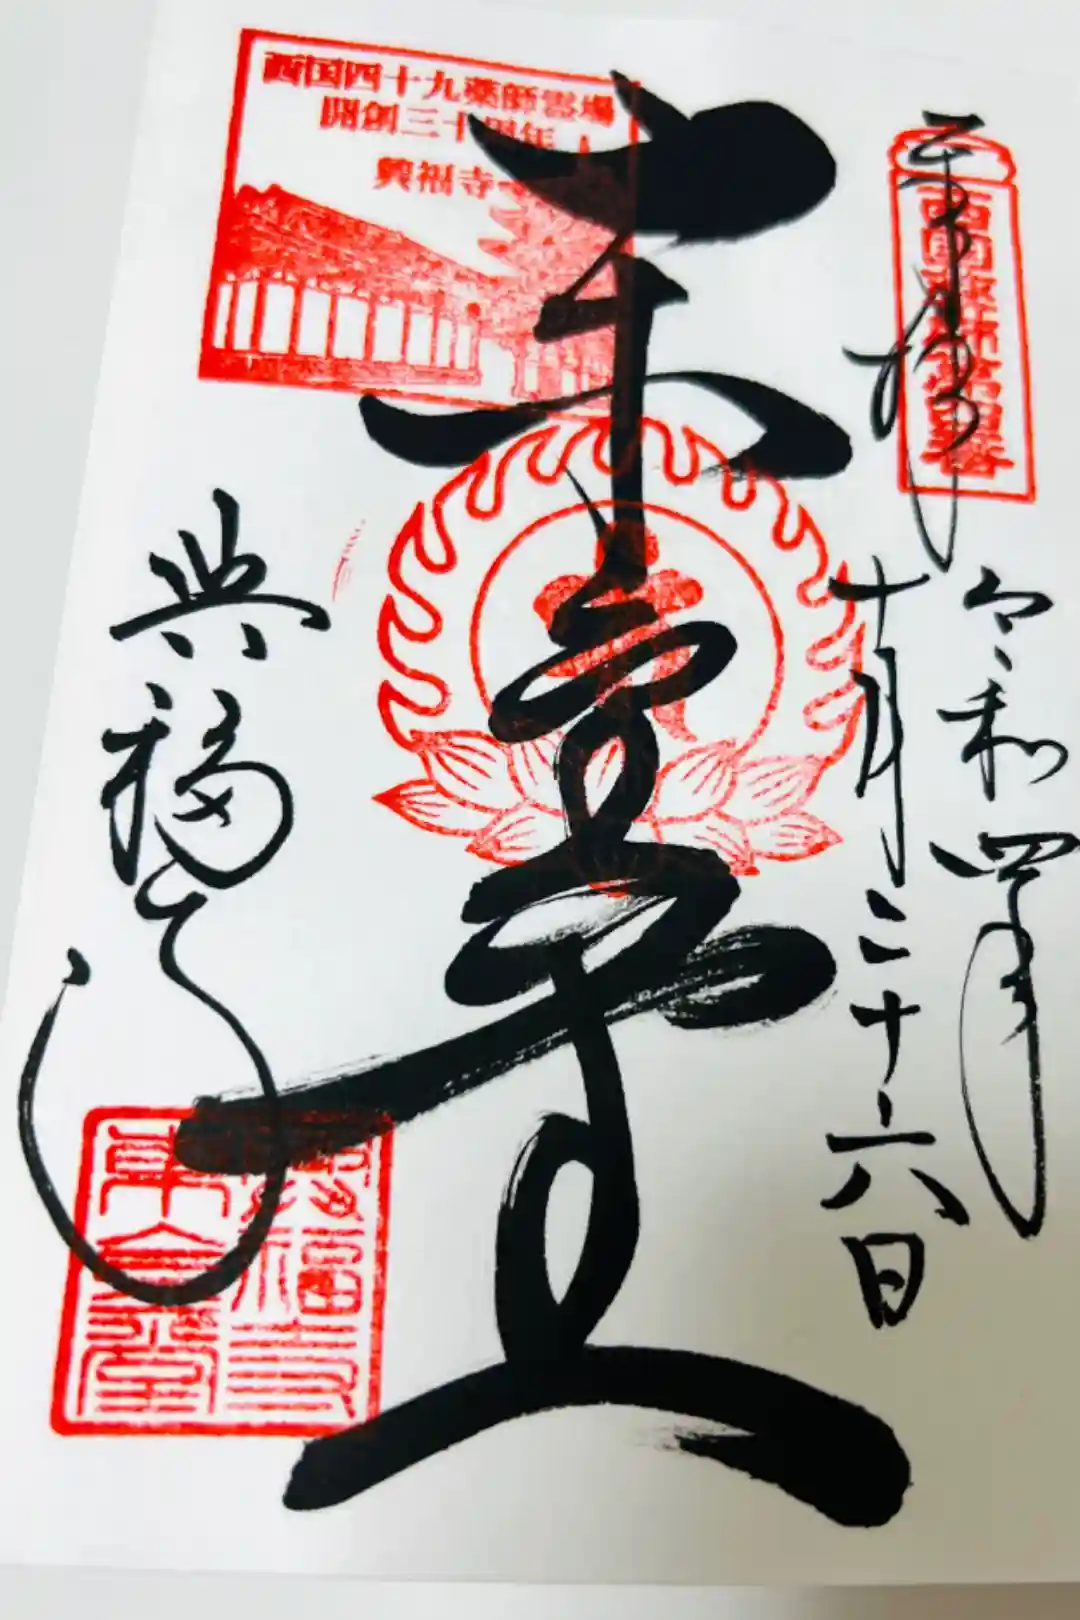 奉拝
令和四年
十月二十六日
西国薬師第四番
東金堂
西国四十九薬師霊場
開創三十周年
興福寺
興福寺
興福寺
東金堂